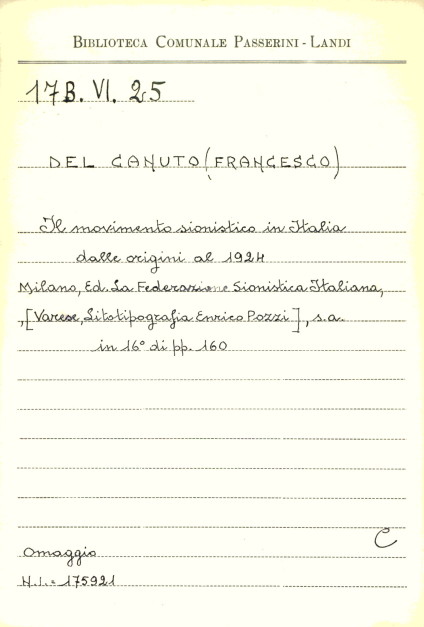 BIBLIOTECA COMUNALE PASSERINI - LANDI
17B. VI. 25
DEL CANUTO (FRANCESCO)
Il movimento sionistico in Italia
dalle origini al 1924
Milano, Ed. La Federazione Sionistica Italiana,
,[Varese, Litotipografia Enrico Pozzi], s.a.
in 16° di pp. 160
C
Omaggio
N.I. = 175921